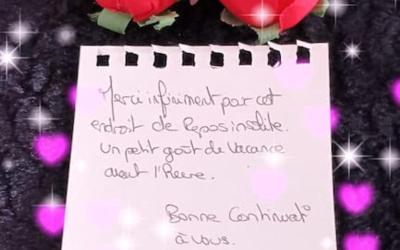 Merci infiniment par cet
endroit de Repos insolite.
un petit goût de Vacance
avant l'Heure.
Bonne Continuat°
à vous.